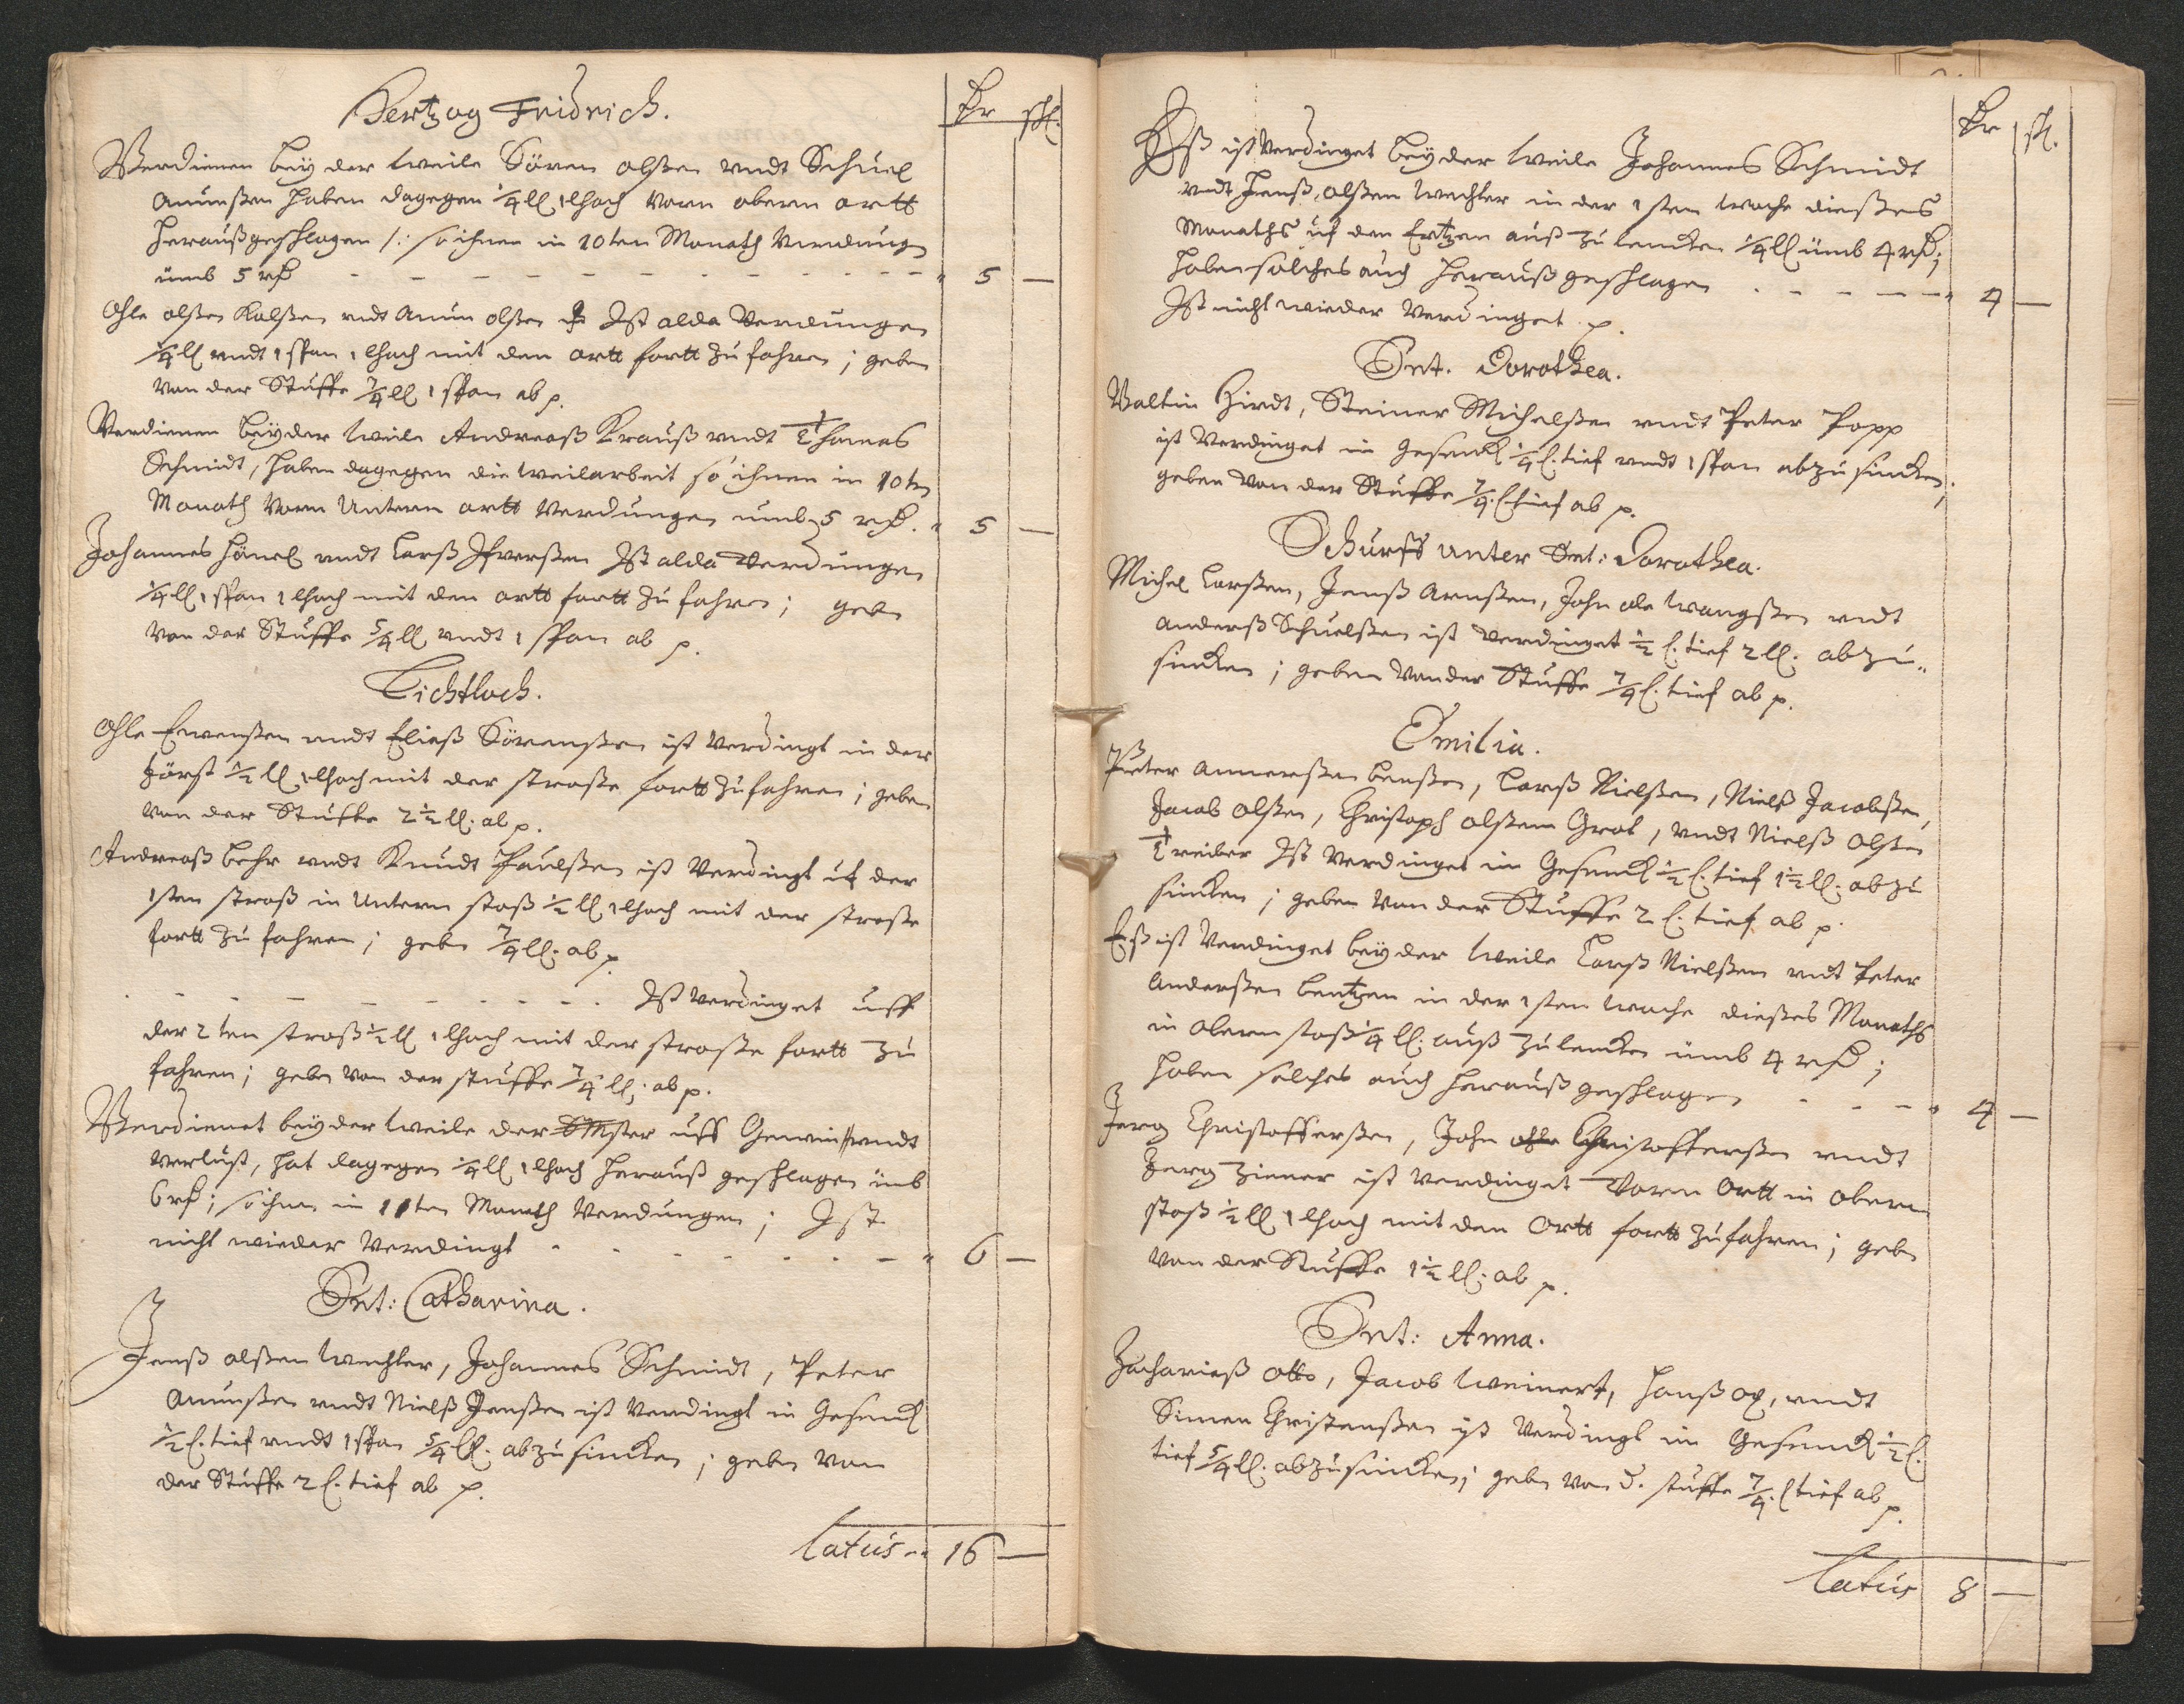 Hertzog Fridrich.
Rr ßl.
Verdienen beÿ der weile Sören olßen undt Schuel
Amunßen haben dagegen 1/4 ll 1 lhoch vorn obern ortt
heraußgeschlagen /: so ihnen in 10ten Monath Verdungen
umb 5 rß - - - - - - - - - - - " 5 —
Ohle olßen Kolßen undt Amun olßen Ist alda Verdungen
1/4 ll undt 1 span 1 lhoch mit den ortt fortt zu fahren; geben
von der Stuffe 7/4 ll 1 span ab p.
Verdienen beÿ der weile Andreaß Krauß undt Thomas
Schmidt, haben dagegen die weilarbeit so ihnen in 10ten
Monath vorn Untern ortt Verdungen umb 5 rß. " 5 —
Johannes Hänel undt Larß Ifverßen Ist alda Verdungen
1/4 ll 1 span 1 lhoch mit den ortt fortt zu fahren; geben
von der Stuffe 5/4 ll undt 1 span ab p.
Lichtloch.
Ohle Evenßen undt Eliaß Sörenßen ist Verdingt in der
först 1/2 ll 1 lhoch mit der straße fortt zu fahren; geben
von der Stuffe 2 1/2 ll. ab p.
Andreaß Behr undt Knudt Paulßen ist Verdingt uf der
1sten straß in Untern staß 1/2 ll 1 lhoch mit der straße
fortt zu fahren; geben 7/4 ll. ab p.
- - - - - - - - - Ist Verdinget uff
der 2ten straß 1/2 ll 1 lhoch mit der straße fortt zu
fahren; geben von der stuffe 7/4 ll. ab p.
Verdienet beÿ der weile der uff Gewin undt
Verlust, hat dagegen 1/4 ll 1 lhoch herauß geschlagen umb
6 rß; so ihnen in 11ten Monath Verdungen; Ist
nicht wieder Verdingt - - - - - - - " 6 —
Snt: Catharina.
Jenß olßen wachter, Johannes Schmidt, Peter
Amunßen undt Nielß Jenßen ist Verdingt in Gesenck
1/2 l. tief undt 1 span 5/4 ll. abzusincken; geben von
der Stuffe 2 l. tief ab p.
Latus " 16 —
Rr ßl.
Eß ist Verdinget beÿ der weile Johannes Schmidt
undt Jenß olßen wachter in der 1sten woche dießes
Monaths uf den Ertzen auß zu lencken 1/4 ll umb 4 rß;
haben solches auch herauß geschlagen - - - - - " 4 —
Ist nicht wieder Verdinget p.
Snt. Dorothea.
Valtin Hirdt, Steiner Michelßen undt Peter Popp
ist Verdinget in Gesenck 1/4 l. tief undt 1 span abzusincken;
geben von der Stuffe 7/4 l tief ab p.
Schurff unter Snt: Dorothea.
Michel Larßen, Jenß Arnßen, John ole wangßen undt
Anderß Schuelßen ist verdinget 1/2 l. tief 2 ll. abzu-
sincken; geben von der Stuffe 7/4 l. tief ab p.
Emilia.
Peter Annerßen Benßen, Larß Nielßen, Nielß Jacobßen,
Jacob olßen, Christoph olßen Grot, undt Nielß Olßen
Treiber Ist Verdinget in Gesenck 1/2 l. tief 1 1/2 ll. abzu
sincken; geben von der Stuffe 2 l. tief ab p.
Eß ist Verdinget beÿ der weile Larß Nielßen undt Peter
Anderßen Bentzen in der 1sten woche dießes Monaths
in obern staß 1/4 ll. auß zu lencken umb 4 rß;
haben solches auch herauß geschlagen - - - " 4 —
Jerg Christofferßen, John Christofferßen undt
Jerg Ziener ist verdinget vorn Ortt in obern
staß 1/2 ll 1 lhoch mit den Ortt fortt zu fahren; geben
von der Stuffe 1 1/2 ll. ab p.
Snt: Anna.
Zacharias Otto, Jacob Weinert, Hanß Ox, undt
Simen Christenßen ist Verdingt in Gesenck 1/2 l.
tief 5/4 ll. abzusincken; geben von d. stuffe 7/4 l tief ab p.
Latus 8 —